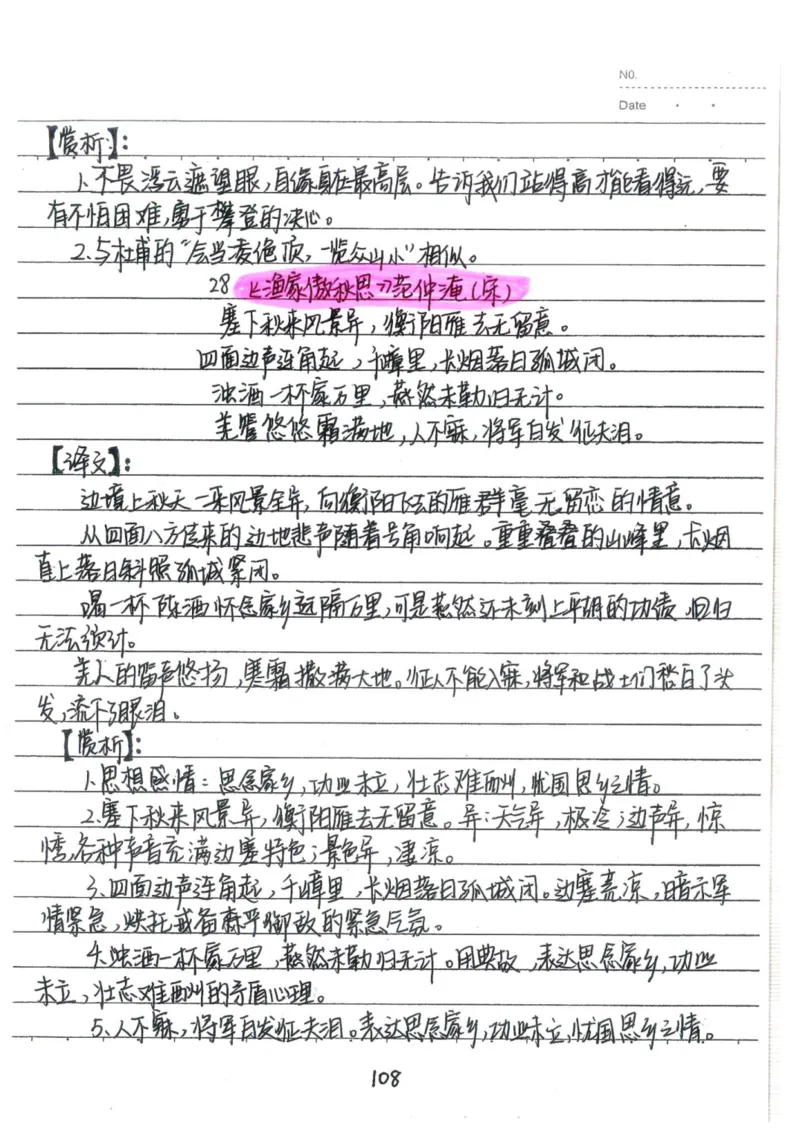 No.
Date
【赏析】:
1.不畏浮云遮望眼,自缘身在最高层。告诉我们站得高才能看得远,要
有不怕困难,勇于攀登的决心。
2.与杜甫的“会当凌绝顶,一览众山小”相似。
28 《渔家傲秋思》范仲淹(宋)
塞下秋来风景异,衡阳雁去无留意。
四面边声连角起,千嶂里,长烟落日孤城闭。
浊酒一杯家万里,燕然未勒归无计。
羌管悠悠霜满地,人不寐,将军白发征夫泪。
【译文】:
边境上秋天一来风景全异,向衡阳飞去的雁群毫无留恋的情意。
从四面八方传来的边地悲声随着号角响起。重重叠叠的山峰里,长烟
直上落日斜照孤城紧闭。
喝一杯陈酒怀念家乡远隔万里,可是燕然还未刻上平胡的功绩,回归
无法预计。
羌人的笛声悠扬,寒霜撒满大地。征人不能入寐,将军和战士们愁白了头
发,流下了眼泪。
【赏析】:
1.思想感情:思念家乡,功业未立,壮志难酬,忧国思乡之情。
2.塞下秋来风景异,衡阳雁去无留意。异:天气异,极冷;边声异,惊
悸,各种声音充满边塞特色;景色异,凄凉。
3.四面边声连角起,千嶂里,长烟落日孤城闭。边塞荒凉,暗示军
情紧急,烘托戒备森严御敌的紧急气氛。
4.浊酒一杯家万里,燕然未勒归无计。用典故,表达思念家乡,功业
未立,壮志难酬的矛盾心理。
5.人不寐,将军白发征夫泪。表达思念家乡,功业未立,忧国思乡之情。
108